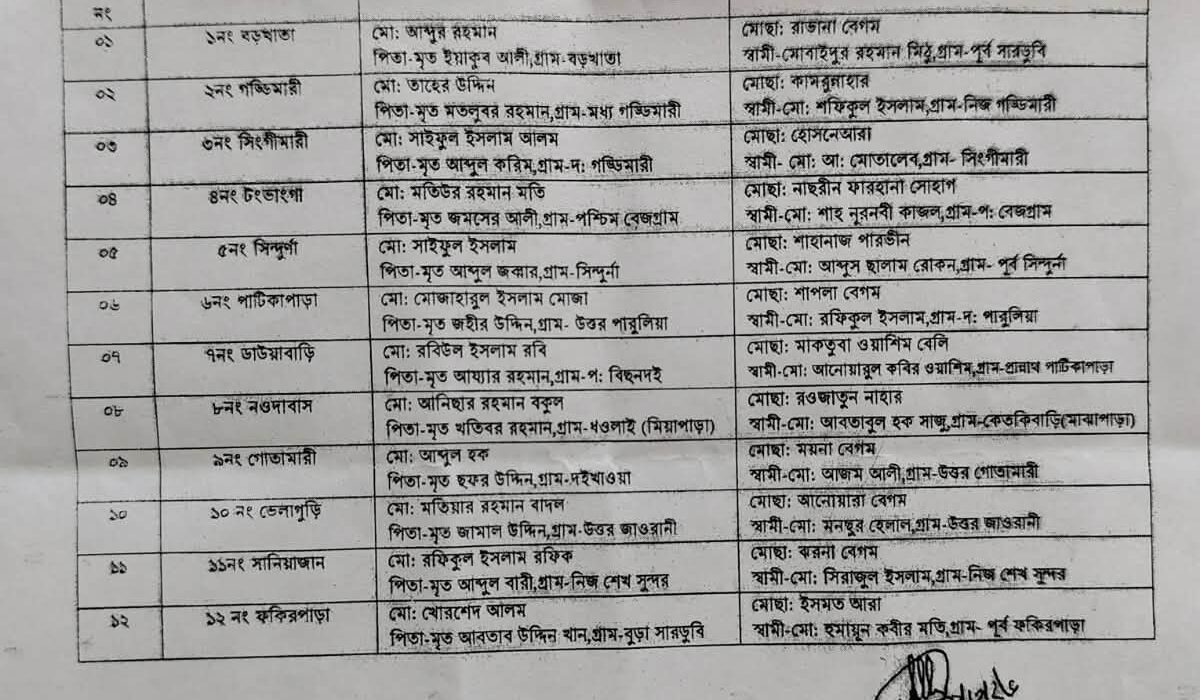 নং
০১ ১নং বড়খাতা মো: আব্দুর রহমান মোছা: রাজানা বেগম
পিতা-মৃত ইয়াকুব আলী,গ্রাম-বড়খাতা স্বামী-মোবাইদুর রহমান মিঠু,গ্রাম-পূর্ব সারডুবি
০২ ২নং গড্ডিমারী মো: তাহের উদ্দিন মোছা: কামরুন্নাহার
পিতা-মৃত মতলুবর রহমান,গ্রাম-মধ্য গড্ডিমারী স্বামী-মো: শফিকুল ইসলাম,গ্রাম-নিজ গড্ডিমারী
০৩ ৩নং সিংগীমারী মো: সাইফুল ইসলাম আলম মোছা: হোসনেআরা
পিতা-মৃত আব্দুল করিম,গ্রাম-দ: গড্ডিমারী স্বামী- মো: আ: মোতালেব,গ্রাম- সিংগীমারী
০৪ ৪নং টংভাংগা মো: মতিউর রহমান মতি মোছা: নাছরীন ফারহানা সোহাগ
পিতা-মৃত জমসের আলী,গ্রাম-পশ্চিম বেজগ্রাম স্বামী-মো: শাহ নূরনবী কাজল,গ্রাম-প: বেজগ্রাম
০৫ ৫নং সিন্দুর্ণা মো: সাইফুল ইসলাম মোছা: শাহানাজ পারভীন
পিতা-মৃত আব্দুল জব্বার,গ্রাম-সিন্দুর্না স্বামী-মো: আব্দুস ছালাম রোকন,গ্রাম- পূর্ব সিন্দুর্না
০৬ ৬নং পাটিকাপাড়া মো: মোজাহারুল ইসলাম মোজা মোছা: শাপলা বেগম
পিতা-মৃত জহীর উদ্দিন,গ্রাম- উত্তর পারুলিয়া স্বামী-মো: রফিকুল ইসলাম,গ্রাম-দ: পারুলিয়া
০৭ ৭নং ডাউয়াবাড়ি মো: রবিউল ইসলাম রবি মোছা: মাকতুবা ওয়াশিম বেলি
পিতা-মৃত আয্যার রহমান,গ্রাম-প: বিছনদই স্বামী-মো: আনোয়ারুল কবির ওয়াশিম,গ্রাম-প্রান্নাথ পাটিকাপাড়া
০৮ ৮নং নওদাবাস মো: আনিছার রহমান বকুল মোছা: রওজাতুন নাহার
পিতা-মৃত খতিবর রহমান,গ্রাম-ধওলাই (মিয়াপাড়া) স্বামী-মো: আবতাবুল হক সাজু,গ্রাম-কেতকিবাড়ি(মাঝাপাড়া)
০৯ ৯নং গোতামারী মো: আব্দুল হক মোছা: ময়না বেগম
পিতা-মৃত ছফর উদ্দিন,গ্রাম-দইখাওয়া স্বামী-মো: আজম আলী,গ্রাম-উত্তর গোতামারী
১০ ১০ নং ভেলাগুড়ি মো: মতিয়ার রহমান বাদল মোছা: আনোয়ারা বেগম
পিতা-মৃত জামাল উদ্দিন,গ্রাম-উত্তর জাওরানী স্বামী-মো: মনছুর হেলাল,গ্রাম-উত্তর জাওরানী
১১ ১১নং সানিয়াজান মো: রফিকুল ইসলাম রফিক মোছা: ঝরনা বেগম
পিতা-মৃত আব্দুল বারী,গ্রাম-নিজ শেখ সুন্দর স্বামী-মো: সিরাজুল ইসলাম,গ্রাম-নিজ শেখ সুন্দর
১২ ১২ নং ফকিরপাড়া মো: খোরশেদ আলম মোছা: ইসমত আরা
পিতা-মৃত আবতাব উদ্দিন খান,গ্রাম-বুড়া সারডুবি স্বামী-মো: হুমায়ুন কবীর মতি,গ্রাম- পূর্ব ফকিরপাড়া